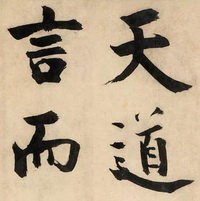 天道
言而